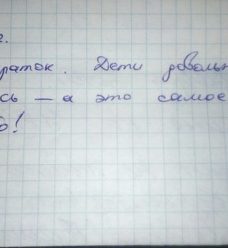 г.
раток. Дети доволь
сь — а это самое
о!